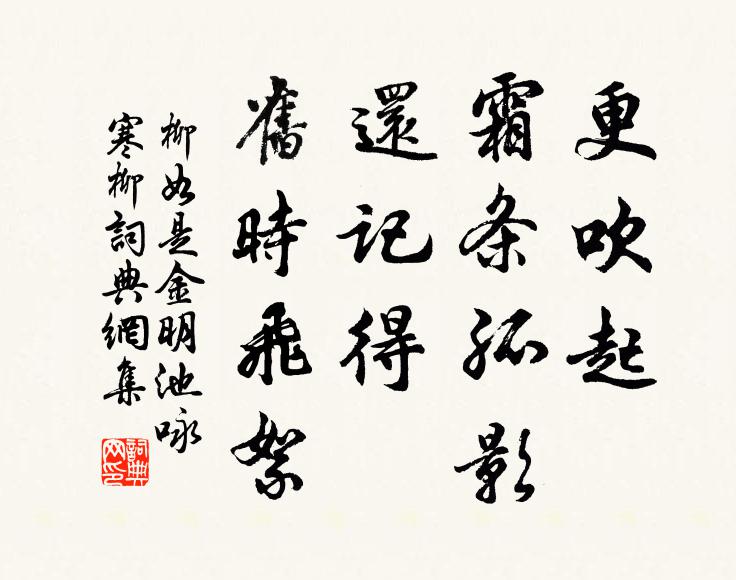 更吹起
霜条孤影
還記得
舊時飛絮
柳如是金明池咏
寒柳詞典網集
詞典网印